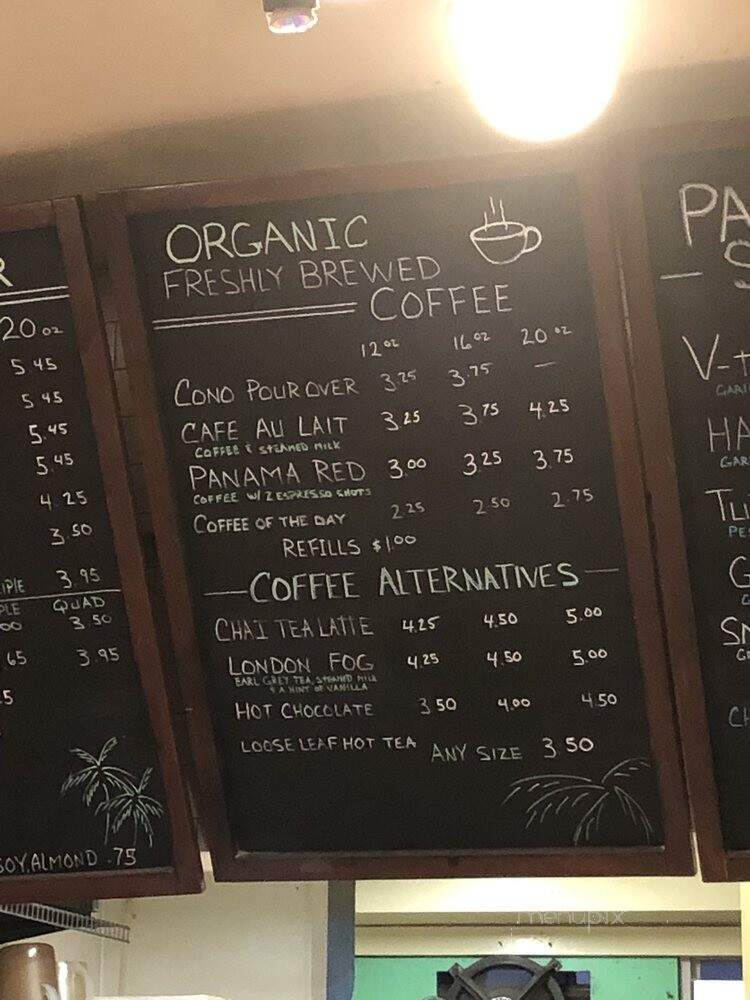 R
20 oz
5 45
5 45
5.45
5.45
4 25
3.50
3.95
QUAD
3 50
65 3.95
SOY, ALMOND .75
ORGANIC
FRESHLY BREWED
COFFEE
12 oz 16 oz 20 oz
CONO POUR OVER 3.25 3.75 —
CAFE AU LAIT 3.25 3.75 4.25
COFFEE & STEAMED MILK
PANAMA RED 3.00 3.25 3.75
COFFEE W/ 2 ESPRESSO SHOTS
COFFEE OF THE DAY 2.25 2.50 2.75
REFILLS $1.00
— COFFEE ALTERNATIVES —
CHAI TEA LATTE 4.25 4.50 5.00
LONDON FOG 4.25 4.50 5.00
EARL GREY TEA, STEAMED MILK
& A HINT OF VANILLA
HOT CHOCOLATE 3 50 4.00 4.50
LOOSE LEAF HOT TEA ANY SIZE 3 50
PA
S
V-
HA
GAR
TU
PE
G
SN
menupix